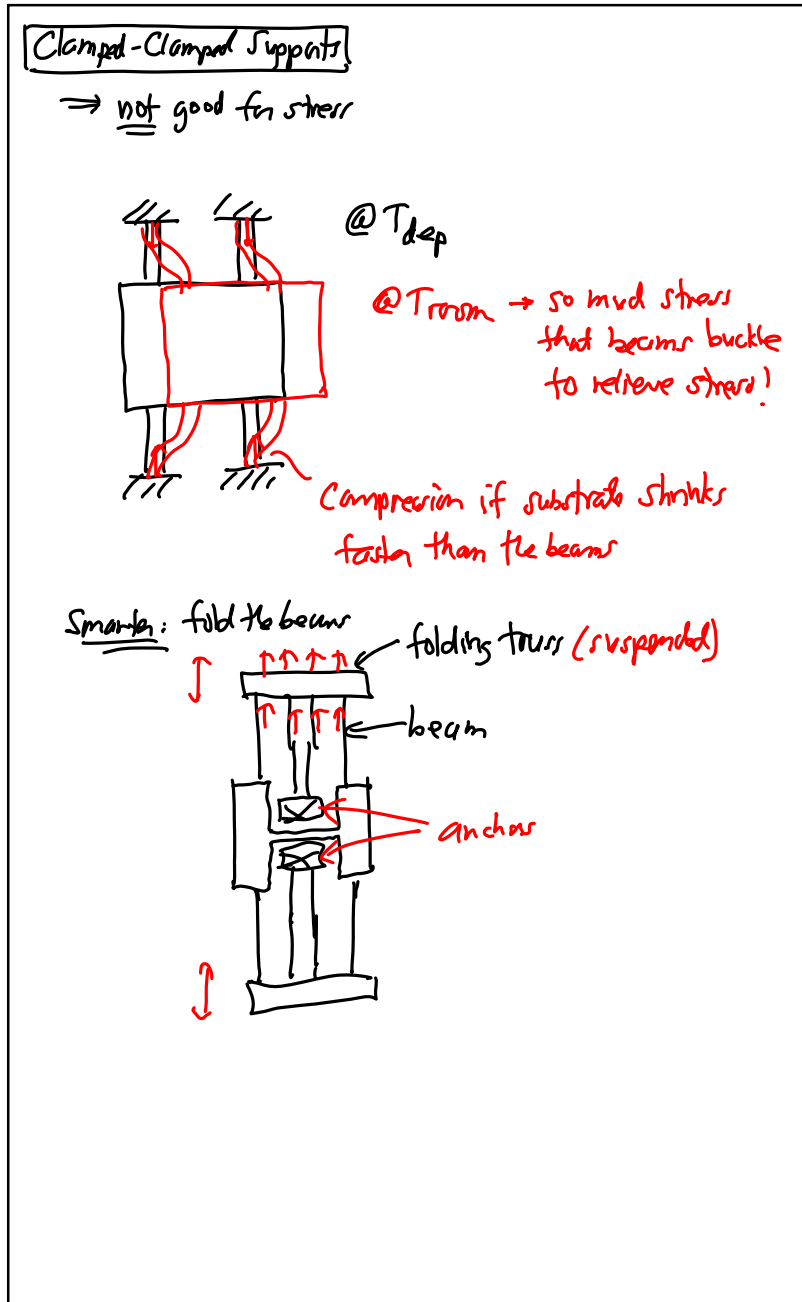 Clamped-Clamped Supports
⇒ not good for stress
@ Tdep
@ Troom → so much stress
that beams buckle
to relieve stress!
Compression if substrate shrinks
faster than the beams
Smarter: fold the beams
folding truss (suspended)
beam
anchors